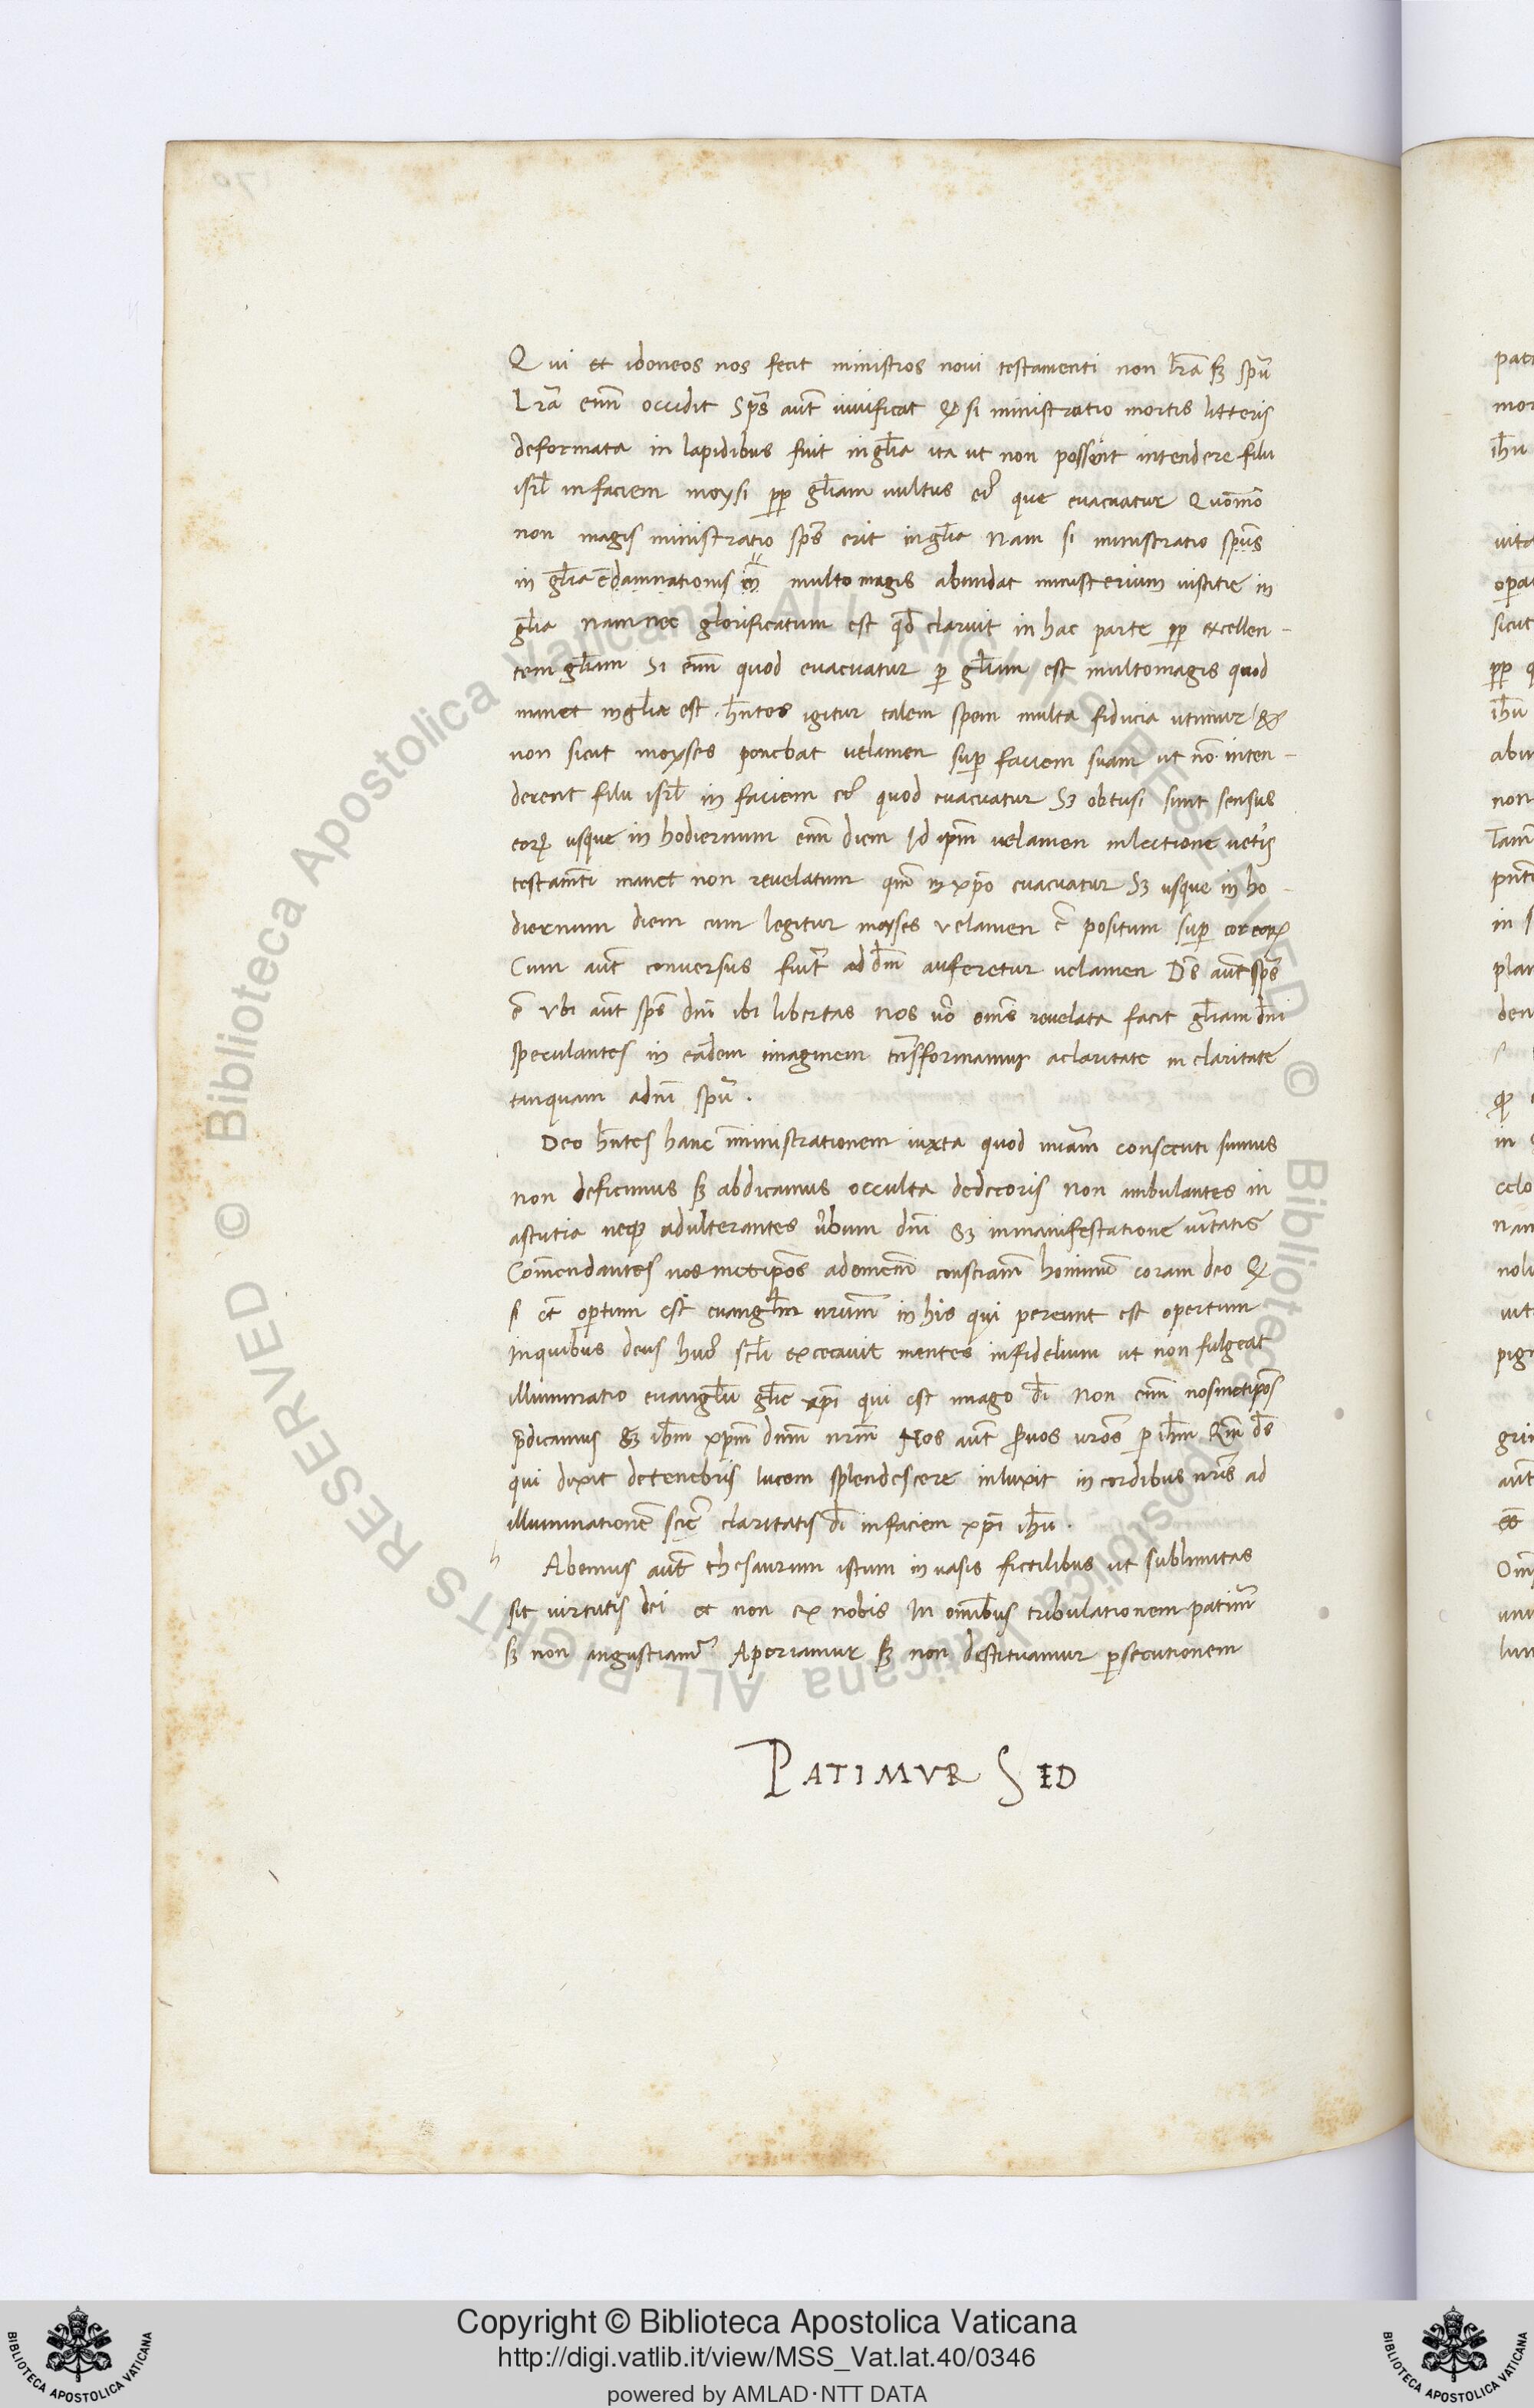 Qui et idoneos nos fecit ministros novi testamenti non l̅r̅a̅ sꝫ sp̅u
L̅r̅a̅ eni̅m occidit Sp̅s au̅t vivificat Qꝫ si ministratio mortis litteris
deformata in lapidibus fuit in gl̅ia ita ut non possent intendere filii
isrl̅ in faciem moysi pp̅ gl̅iam vultus ei᷒ que evacuatur Quom̅o
non magis ministratio sp̅s erit in gl̅ia Nam si ministratio sp̅us
in gl̅ia c̅damnationis multo magis abundat ministerium iustitie in
gl̅ia Nam nec glorificatum est qd̅ claruit in hac parte pp̅ excellen-
tem gl̅iam Si eni̅m quod evacuatur p̱ gl̅iam est multomagis quod
manet in gl̅ia est. h̅ntes igitur talem spem multa fiducia utimur &
non sicut moyses ponebat velamen sup̱ faciem suam ut no̅ inten-
derent filii isrl̅ in faciem ei᷒ quod evacuatur Sꝫ obtusi sunt sensus
eorꝝ usque in hodiernum eni̅m diem Id ip̅m velamen in lectione vet̅is
testam̅ti manet non revelatum qm̅ in xp̅o evacuatur Sꝫ usque in ho-
diernum diem cum legitur moyses velamen e̅ positum sup̱ cor eorꝝ
Cum au̅t conversus fuit᷒ ad d̅m auferetur velamen D̅s au̅t sp̅s
e̅ Ubi au̅t sp̅s dn̅i ibi libertas Nos v̅o om̅s revelata facit gl̅iam dn̅i
speculantes in eadem imaginem tra̅sformamur a claritate in claritate̅
tanquam adn̅i sp̅u.
Deo h̅ntes hanc ministrationem iuxta quod mi̅am consecuti sumus
non deficimus sꝫ abdicamus occulta dedecoris non ambulantes in
astutia neqꝫ adulterantes v̅bum dn̅i sꝫ in manifestatione v̅itatis
Com̅endantes nosmetip̅os ad omnem̅ conscia̅m hominu̅ coram deo Qꝫ
si et̅ op̱tum est evangl̅m nr̅um in his qui pereunt est opertum
In quibus deus hui᷒ scl̅i excecavit mentes infidelium ut non fulgeat
illuminatio evangl̅ii gl̅ie xp̅i qui est imago d̅i Non eni̅m nosmetip̅os
p̅dicamus sꝫ ih̅m xp̅m dn̅m nr̅m Nos au̅t s̱vos vr̅os p̱ ih̅m Qm̅ d̅s
qui dixit de tenebris lucem splendescere inluxit in cordibus nr̅is ad
illuminatione̅ scie̅ claritatis d̅i in faciem xp̅i ih̅u.
h Abemus au̅t thesaurum istum in vasis fictilibus ut sublimitas
sit virtutis dei et non ex nobis In omnibus tribulationem patim᷒
sꝫ non angustiam᷒ Aporiamur sꝫ non destituamur p̱secutionem
PATIMVR SED
Copyright © Biblioteca Apostolica Vaticana
http://digi.vatlib.it/view/MSS_Vat.lat.40/0346
powered by AMLAD·NTT DATA
BIBLIOTECA APOSTOLICA VATICANA
BIBLIOTECA APOSTOLICA VATICANA
© Biblioteca Apostolica Vaticana ALL RIGHTS RESERVED © Biblioteca Apostolica Vaticana ALL RIGHTS RESERVED